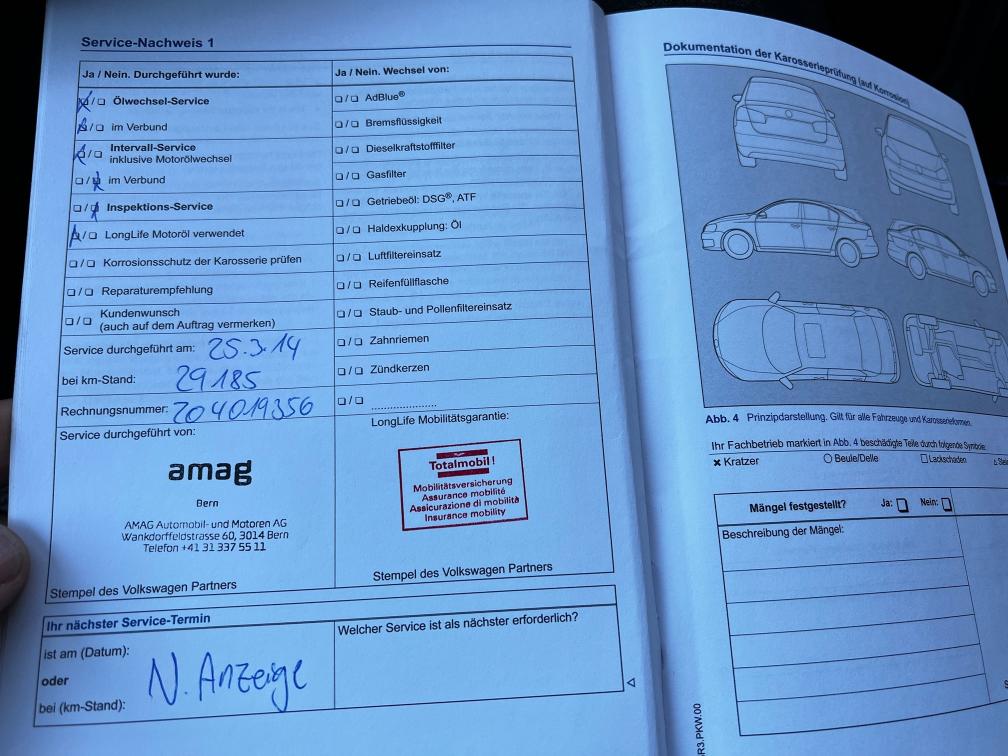 Service-Nachweis 1
Ja / Nein. Durchgeführt wurde:
❏/❏ Ölwechsel-Service
❏/❏ im Verbund
❏/❏ Intervall-Service
inklusive Motorölwechsel
❏/❏ im Verbund
❏/❏ Inspektions-Service
❏/❏ LongLife Motoröl verwendet
❏/❏ Korrosionsschutz der Karosserie prüfen
❏/❏ Reparaturempfehlung
❏/❏ Kundenwunsch
(auch auf dem Auftrag vermerken)
Service durchgeführt am: 25.3.14
bei km-Stand: 29185
Rechnungsnummer: 204019356
Service durchgeführt von:
amag
Bern
AMAG Automobil- und Motoren AG
Wankdorffeldstrasse 60, 3014 Bern
Telefon +41 31 337 55 11
Stempel des Volkswagen Partners
Ja / Nein. Wechsel von:
❏/❏ AdBlue®
❏/❏ Bremsflüssigkeit
❏/❏ Dieselkraftstofffilter
❏/❏ Gasfilter
❏/❏ Getriebeöl: DSG®, ATF
❏/❏ Haldexkupplung: Öl
❏/❏ Luftfiltereinsatz
❏/❏ Reifenfüllflasche
❏/❏ Staub- und Pollenfiltereinsatz
❏/❏ Zahnriemen
❏/❏ Zündkerzen
❏/❏ ....................
LongLife Mobilitätsgarantie:
Totalmobil!
Mobilitätsversicherung
Assurance mobilité
Assicurazione di mobilità
Insurance mobility
Stempel des Volkswagen Partners
Ihr nächster Service-Termin
ist am (Datum):
oder
bei (km-Stand):
N. Anzeige
Welcher Service ist als nächster erforderlich?
Dokumentation der Karosserieprüfung (auf Korrosion)
Abb. 4 Prinzipdarstellung. Gilt für alle Fahrzeuge und Karosserieformen.
Ihr Fachbetrieb markiert in Abb. 4 beschädigte Teile durch folgende Symbole:
✕ Kratzer ○ Beule/Delle □ Lackschaden
Mängel festgestellt? Ja: ❏ Nein: ❏
Beschreibung der Mängel:
R3.PKW.00